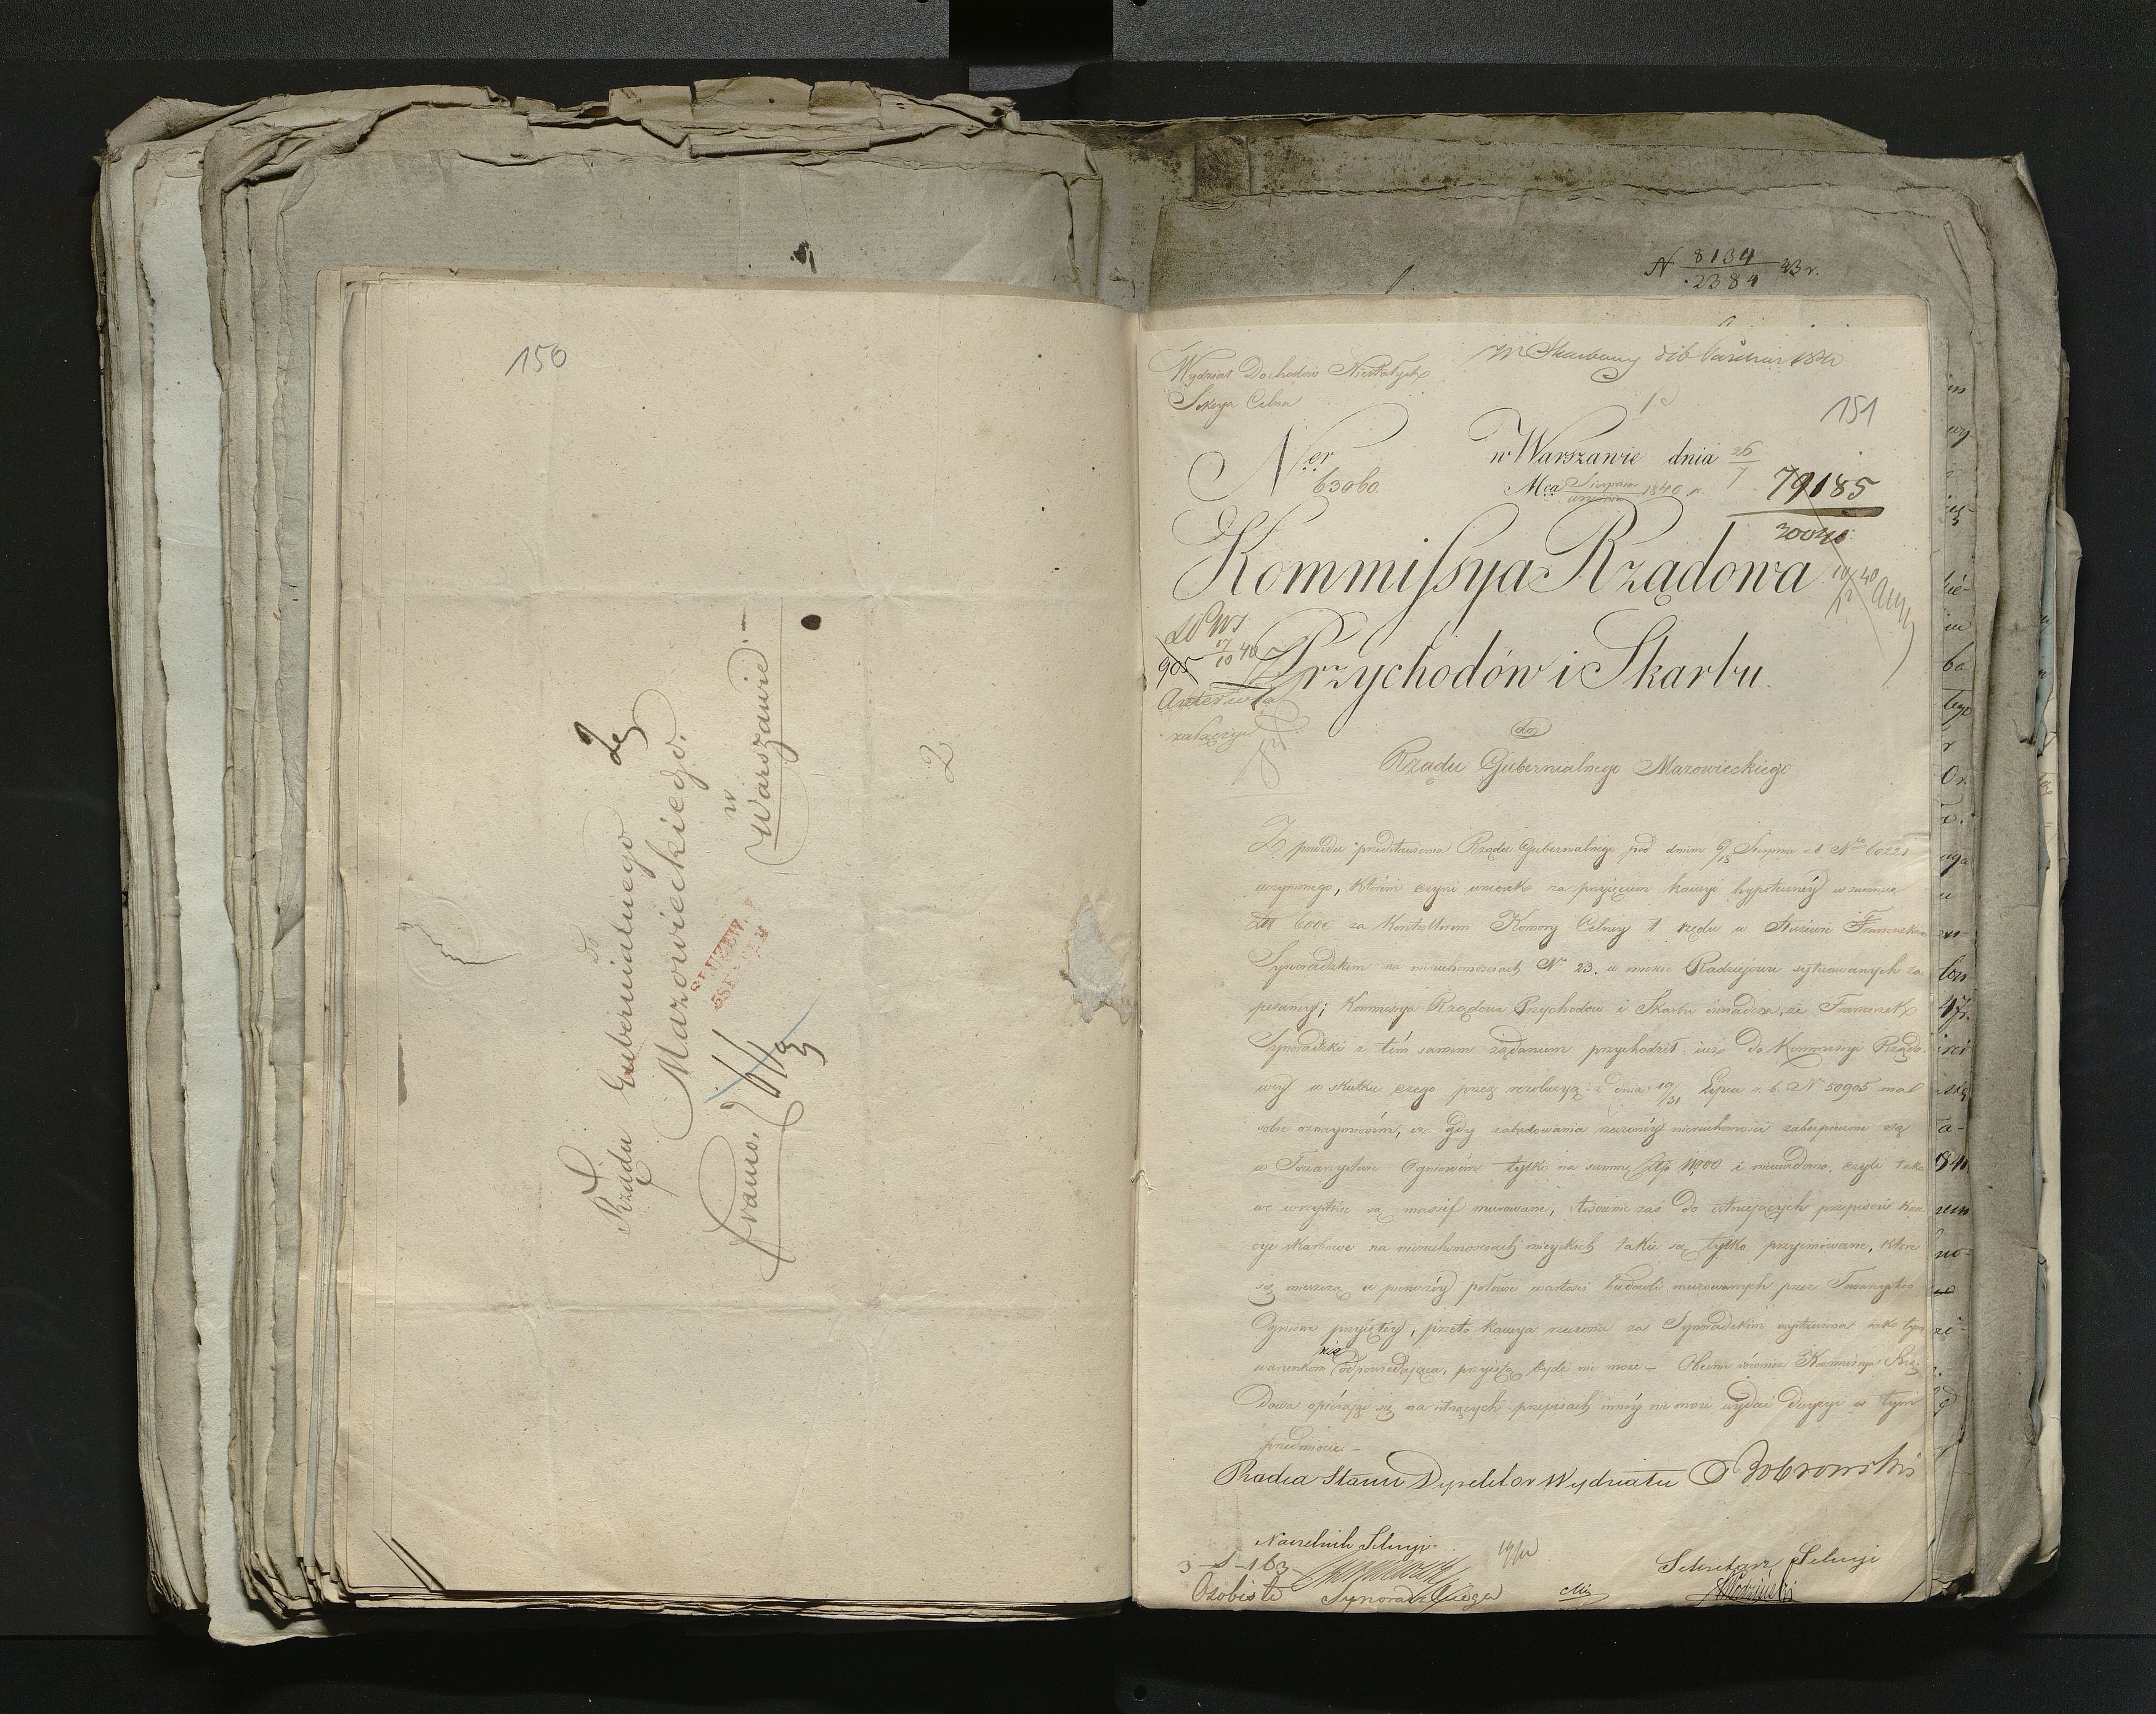 150
do
Rządu Gubernialnego
Mazowieckiego.
w
Warszawie
Franco.
SŁUŻEW.
2
N 8134
2384
Wydział Dochodów Niestałych
Sekcya Celna
151
Ner
63960.
w Warszawie dnia 26/7
Mca Sierpnia
września 1840 r.
79185
Kommissya Rządowa
Przychodów i Skarbu.
905
do
Rządu Gubernialnego Mazowieckiego
Z powodu przedstawienia Rządu Gubernialnego pod dniem 6/18 Sierpnia r. b. No 60221
uczynionego, którém czyni wniosek za przyjęciem kaucyi hypotecznéj w summie
złp 6000 za Kontrollerem Komory Celnéj I rzędu w Służewie Franciszkiem
Synoradzkim na nieruchomościach No 23. w mieście Radziejowie sytuowanych za-
pisanéj; Kommissya Rządowa Przychodów i Skarbu oświadcza, że Franciszek
Synoradzki z tém samém żądaniem przychodził już do Kommissyi Rządo-
wéj w skutku czego przez rezolucyą z dnia 19/31 Lipca r. b. No 50905 miał
sobie oznaymioném, iż gdy zabudowania rzeczonéj nieruchomości zabezpieczone są
w Towarzystwie Ogniowém tylko na summę złp 11,000 i niewiadomo, czyli tako-
we wszystkie są massif murowane, stosownie zaś do istniejących przepisów kau-
cye skarbowe na nieruchomościach mieyskich takie są tylko przyimowane, które
się mieszczą w pierwszéj połowie wartości budowli murowanych przez Towarzystwo
Ogniowe przyjętéj, przeto kaucya rzeczona za Synoradzkim wystawiona jako tym
warunkom nie odpowiadająca, przyjętą bydź nie może – Obecnie również Kommissya Rzą-
dowa opierając się na istnących przepisach innéj nie może wydać decyzyi w tym
przedmiocie. –
Radca Stanu Dyrektor Wydziału Bobrowski
Naczelnik Sekcyi
Sekretarz Sekcyi
Osobiste Synoradzkiego